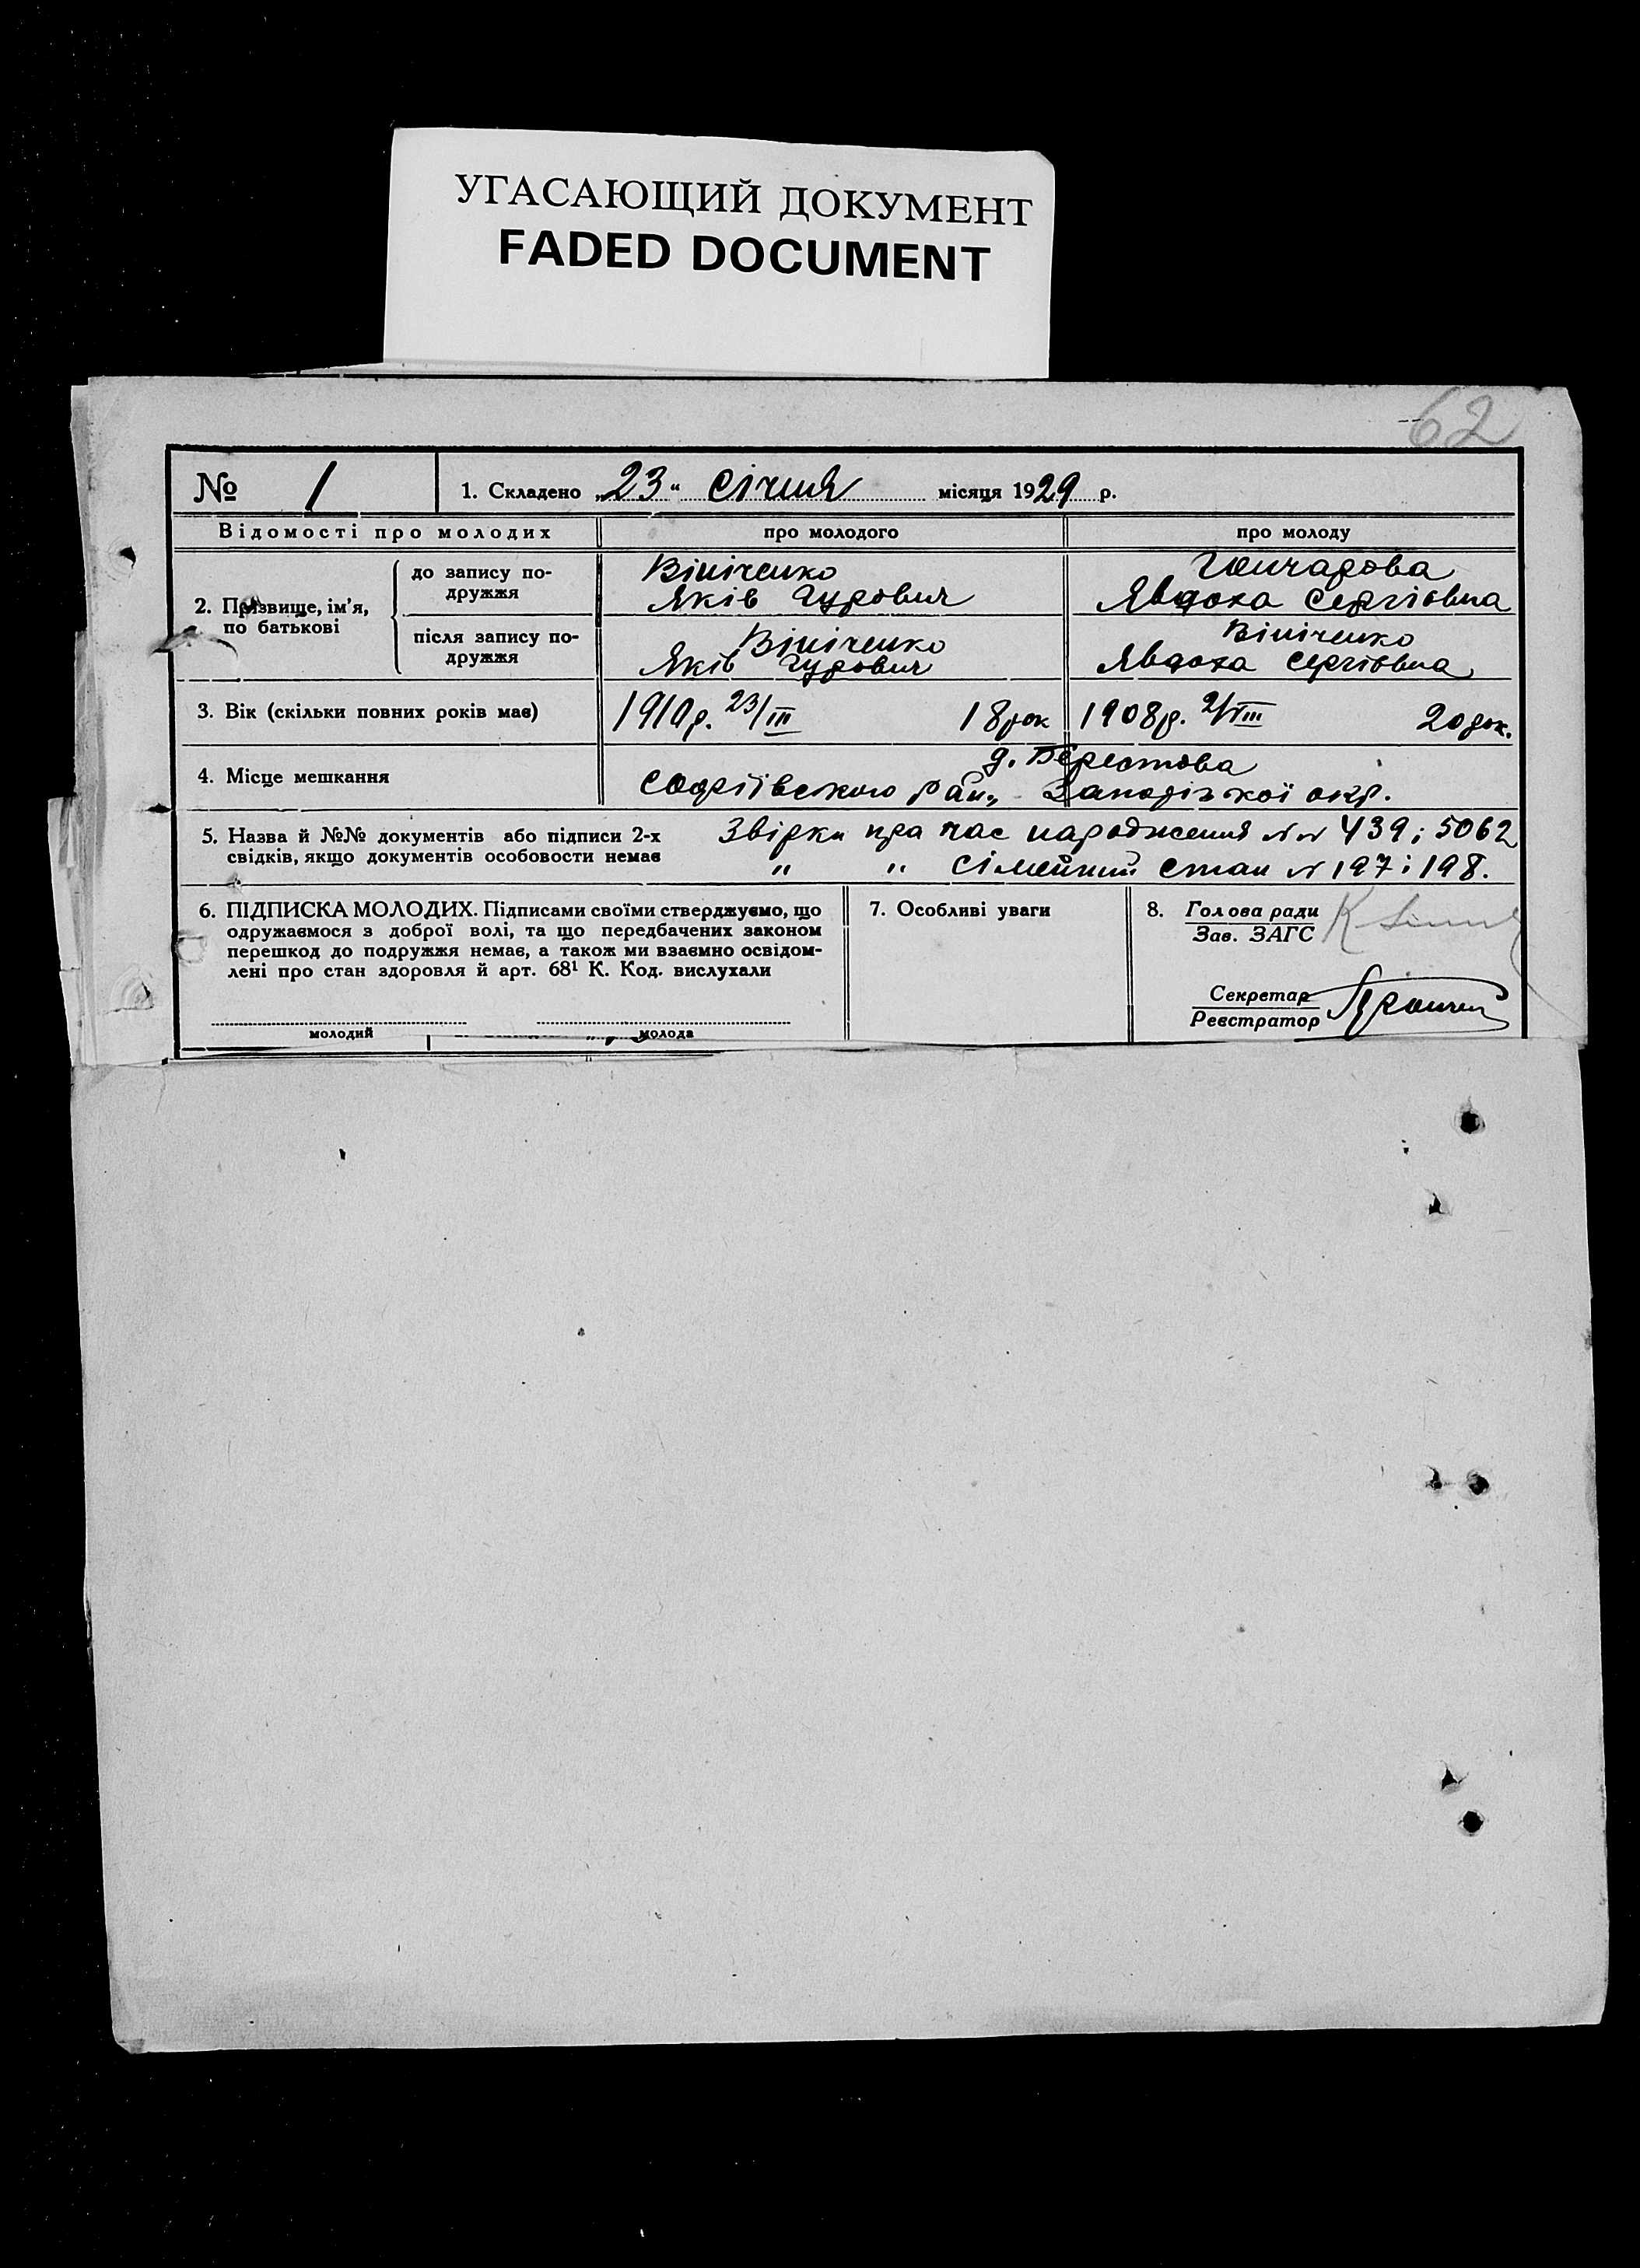 УГАСАЮЩИЙ ДОКУМЕНТ
FADED DOCUMENT
62
№ 1
1. Складено „23“ січня місяця 1929 р.
Відомості про молодих
про молодого
про молоду
2. Прізвище, ім’я, по батькові
до запису по-
дружжя
Вініченко
Яків Гурович
Гончарова
Явдоха Сергіовна
після запису по-
дружжя
Вініченко
Яків Гурович
Вініченко
Явдоха Сергіовна
3. Вік (скільки повних років має)
1910р. 23/III 18 рок
1908р. 2/VIII 20 рок.
4. Місце мешкання
д. Берестова
Софіївського рай. Запорізької окр.
5. Назва й №№ документів або підписи 2-х
свідків, якщо документів особовости немає
Звірки про час народження №№ 439 і 5062
" " сімейний стан № 197 і 198.
6. ПІДПИСКА МОЛОДИХ. Підписами своїми стверджуємо, що
одружаємося з доброї волі, та що передбачених законом
перешкод до подружжя немає, а також ми взаємно освідом-
лені про стан здоровля й арт. 68¹ К. Код. вислухали
молодий
молода
7. Особливі уваги
8. Голова ради
Зав. ЗАГС
Секретар
Реєстратор